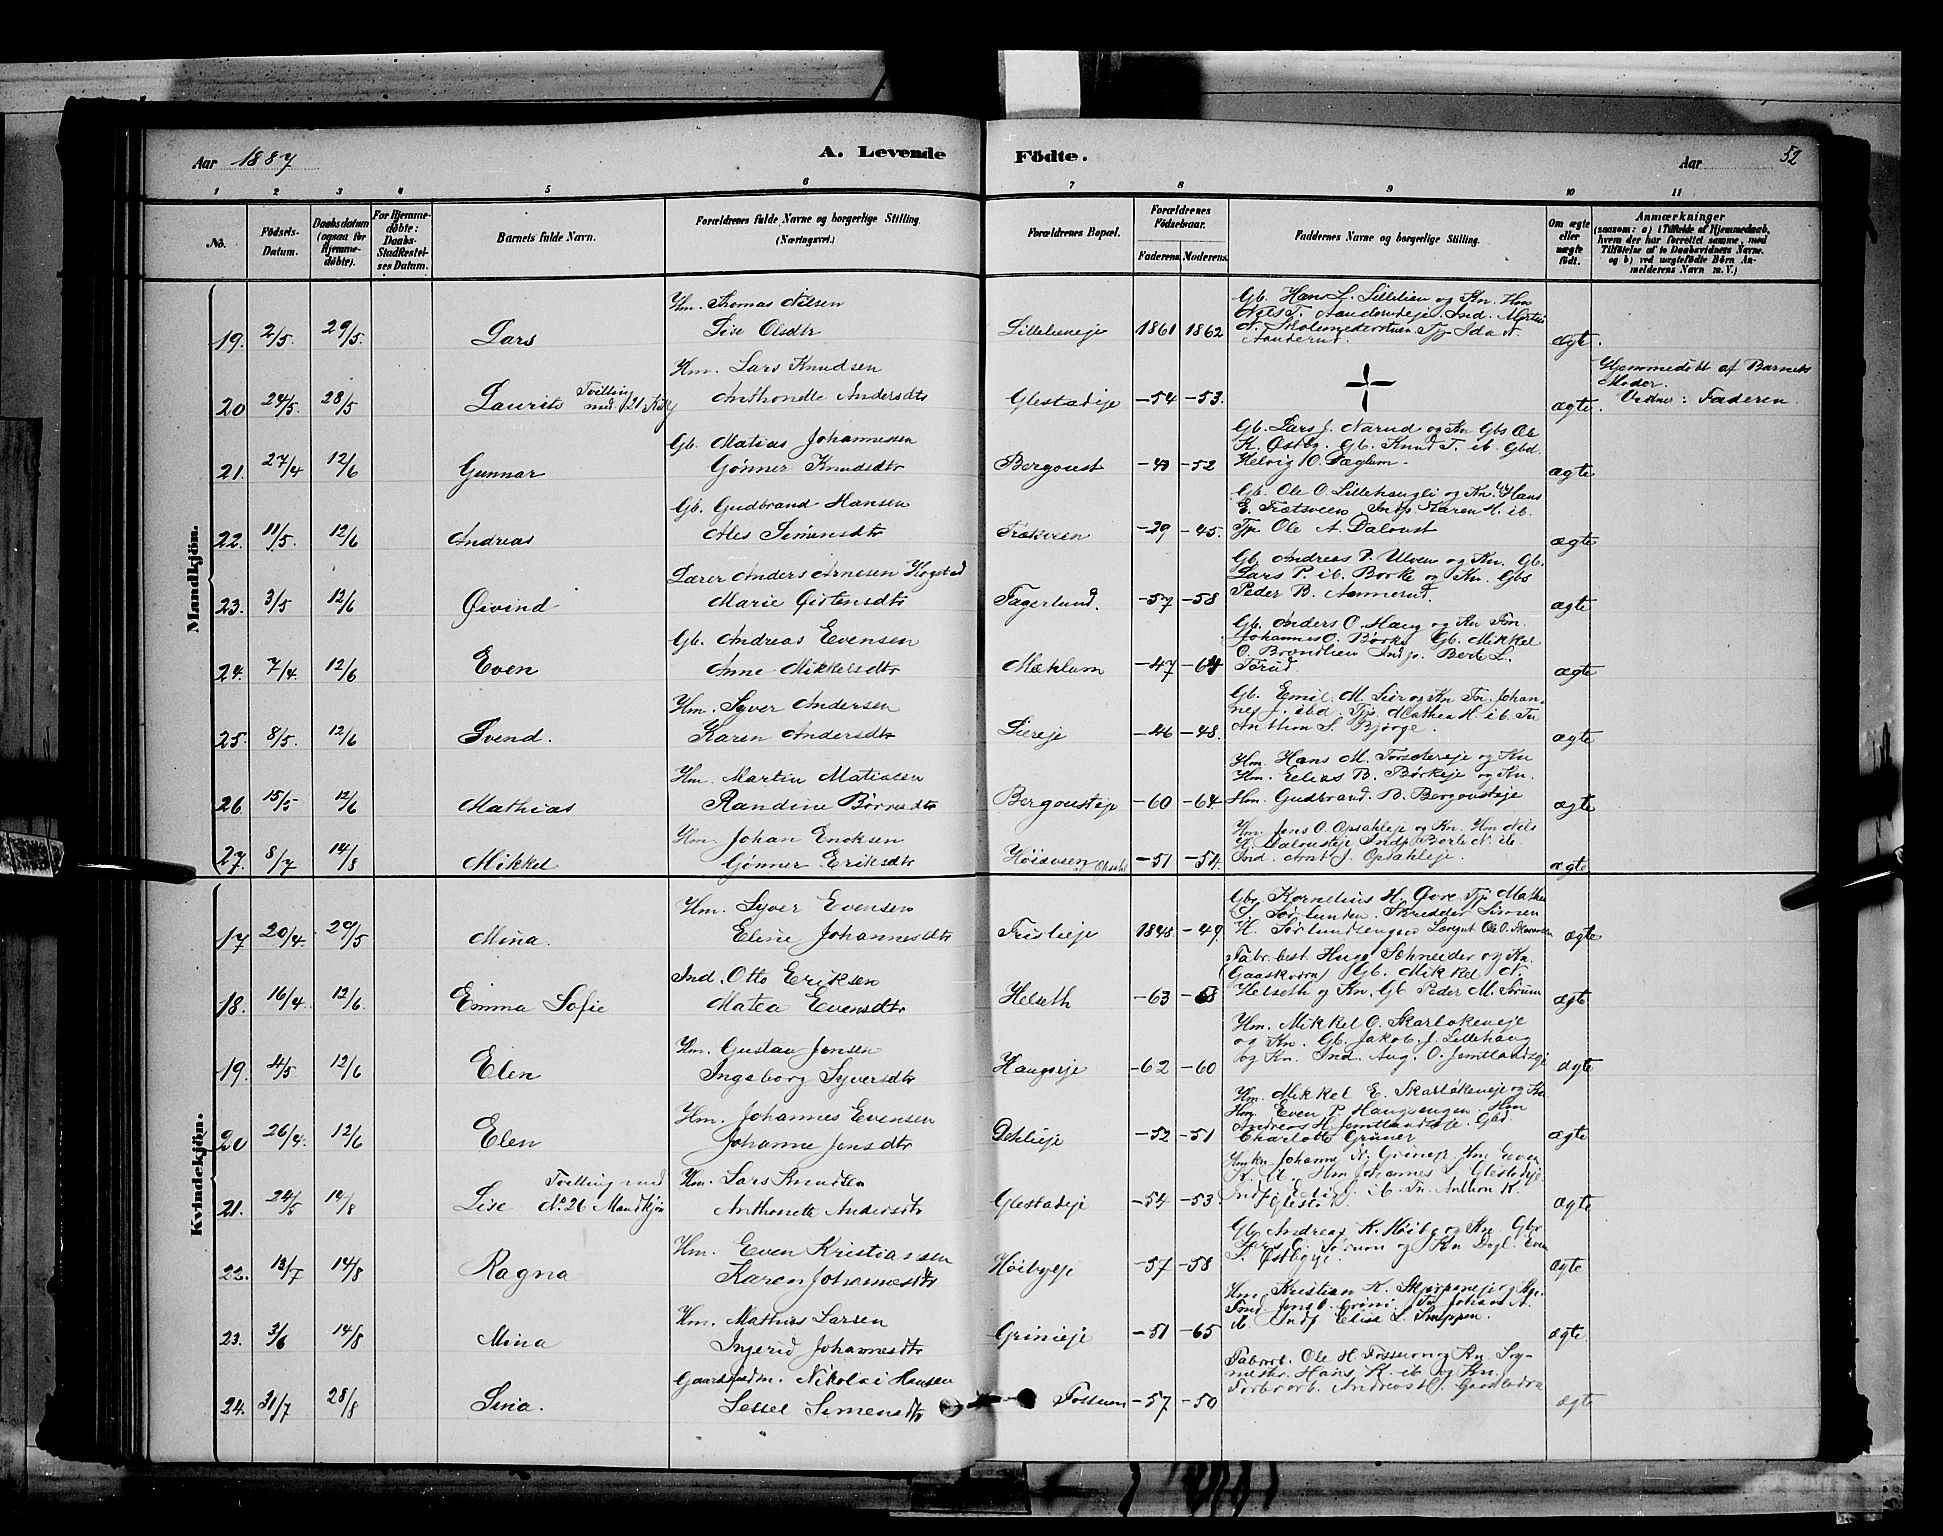 Aar 1887
A. Levende
Födte.
Aar
52
1 2 3 4 5 6 7 8 9 10 11
No.
Födsels-Datum.
Daabsdatum (ogsaa for Hjemmedøbte).
For Hjemmedøbte: Daabs-Stadfæstelses Datum.
Barnets fulde Navn.
Forældrenes fulde Navne og borgerlige Stilling.
(Næringsvei.)
Forældrenes Bopæl.
Forældrenes Födselsaar.
Faderens. Moderens.
Faddernes Navne og borgerlige Stilling.
Om ægte eller uægte født.
Anmærkninger
(saasom: a) i Tilfælde af Hjemmedaab, hvem der har forrettet samme, med Tilföielse af to Daabsvidners Navne. og b) ved uægtefødte Börn Anmelderens Navn m. V.)
Mandkjön.
19. 2/5. 29/5. Lars
Hm. Thomas Nilsen
Lise Olsdtr
Lillelieneje 1861 1862
Gb. Hans L. Lillelien og Kn. Hm
Nels T. Aanderudeje. Ind. Martin
N. Skolemesterstuen Tjp Ida N.
Aanderud.
ægte.
20 24/5. 28/5 Laurits Tvilling med 21 Kvkj
Hm. Lars Knudsen
Anthonette Andersdtr
Glestadeje -54 -53.
ægte.
Hjemmedöbt af Barnets
Moder.
Vidner: Faderen
21. 27/4 12/6 Gunnar
Gb. Matias Johannesen
Gønner Knudsdtr
Bergoust -49 -52
Gb. Lars J. Narud og Kn Gbs Ole
K. Østbg. Gb. Knud T. ib. Gbd.
Helvig O. Dæglum.
ægte
22. 11/5. 12/6 Andreas
Gb. Gudbrand Hansen
Ales Simensdtr
Trætsveen -29 -45.
Gb. Ole O. Lillehaugli og Kn. Hans
E. Trætsveen Indp Karen H. ib.
Tjp Ole A. Daloust
ægte
23. 3/5 12/6 Øivind
Lærer Anders Arnesen Kogstad
Marie Østensdtr
Fagerlund. -57 -58
Gb. Andreas P. Ulven og Kn. Gb.
Lars P. ib. Borke og Kn. Gbs
Peder B. Aannerud.
ægte
24. 7/4. 12/6 Even
Gb. Andreas Evensen
Anne Mikkelsdtr
Mæhlum -47 -64
Gb. Anders O. Haug og Kn Tm.
Johannes O. Børke Gb. Mikkel
O. Brændlien Indp. Berte L.
Torud
ægte
25. 8/5. 12/6 Svend.
Hm. Syver Andersen
Karen Andersdtr
Liereje -46 -48.
Gb. Emil M. Lier og Kn Tm. Johan-
nes J. ibd. Tjp. Mathea H. ib. Tn
Anthon S. Bjørge.
ægte
26. 15/5 12/6 Mathias
Hm. Martin Matiasen
Randine Børresdtr
Bergousteje -60 -64
Hm. Hans M. Torsætereje og Kn
Hm. Eelias B. Børkeje og Kn.
Hm. Gudbrand B. Bergousteje
ægte
27. 8/7 14/8 Mikkel
Hm. Johan Enoksen
Gønner Eriksdtr
Höidesen -51 -54.
Hm. Jens O. Opsahleje og Kn. Hm Nils
H. Dalousteje Indp Berte N. ib.
Ind. Arnt J. Opsahleje.
ægte
Kvindekjön.
17 20/4. 29/5 Mina.
Hm. Syver Evensen
Eline Johannesdtr
Trislieje 1848 -49.
Gbr Kornelius H. Øvre Tjp Mathea
S. Sørlunden. Skrædder Simen
H. Sørlundsengen Sergnt Ole O.
ægte
18. 16/4. 12/6. Emma Sofie
Ind. Otto Eriksen
Matea Evensdtr
Helseth -63 -58
Fabr. best. Hugo Schneider og Kn.
(Gaaskvern) Gb. Mikkel N.
Helseth og Kn. Gb Peder M. Sørum
ægte
19. 4/5 12/6 Elen
Hm. Gustav Jensen
Ingeborg Syversdtr
Haugseje -62 -60
Hm. Mikkel O. Skarløkeneje
og Kn. Gb. Jakob J. Lillehaug
og Kn. Ind. Aug. O. Jemtlandseje
ægte
20 26/4. 12/6 Elen
Hm. Johannes Evensen
Johanne Jensdtr
Dehlieje -52 -51
Hm. Mikkel E. Skarløkeneje og Kn
Hm. Even P. Haugsengen. Hm
Andreas H. Jemtlandseje. Gbd
Charlotte Grüner
ægte
21. 24/5 14/8 Lise Tvilling med No. 26 Mandkjön
Hm. Lars Knudsen
Anthonette Andersdtr
Glestadeje -54 -53.
Hmkn Johanne N. Grineje Hm Even
K. ib. Hm Johannes L. Glestadeje
Indp Eline J. ib. Tn. Anthon K.
Glestad.
ægte
22. 13/7 14/8 Ragna
Hm. Even Kristiansen
Karen Johannesdtr
Höibyeje -57 -58
Gb. Andreas K. Höiby og Kn. Gbr
Lars C. Sørum og Kn Dagl. Even
S. Østbyeje.
ægte
23. 3/6 14/8 Mina
Hm. Mathias Larsen
Ingerid Johannesdtr
Grinieje -51 -65
Hm. Kristian K. Skjerpeneje og Kn.
Tmd Jens O. Grini. Tn Johan A.
ib. Indp Elise L. Snippen.
ægte
24. 31/7 28/8 Sina.
Gaardsfadm. Nikolai Hansen
Lessel Simensdtr
Fossum -57 -50
Fabrarb. Ole H. Fossum og Kn. Sy-
mester Hans K. ib og Kn.
Farbrarb. Andreas H.
ægte